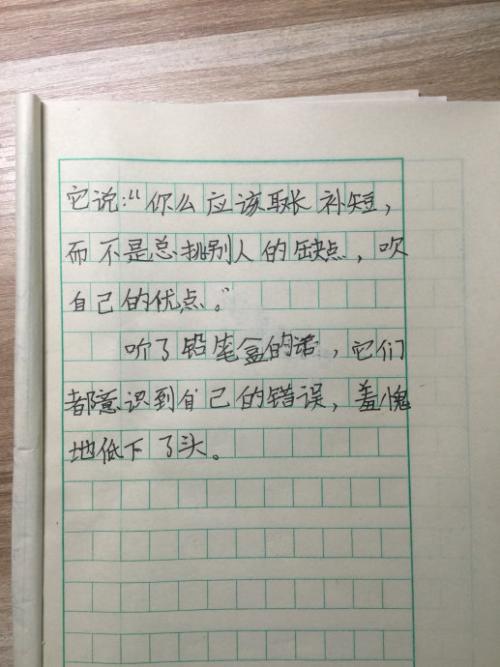 它说:“你么应该取长补短，
而不是总挑别人的缺点，吹
自己的优点。”
听了铅笔盒的话，它们
都意识到自己的错误，羞愧
地低下了头。